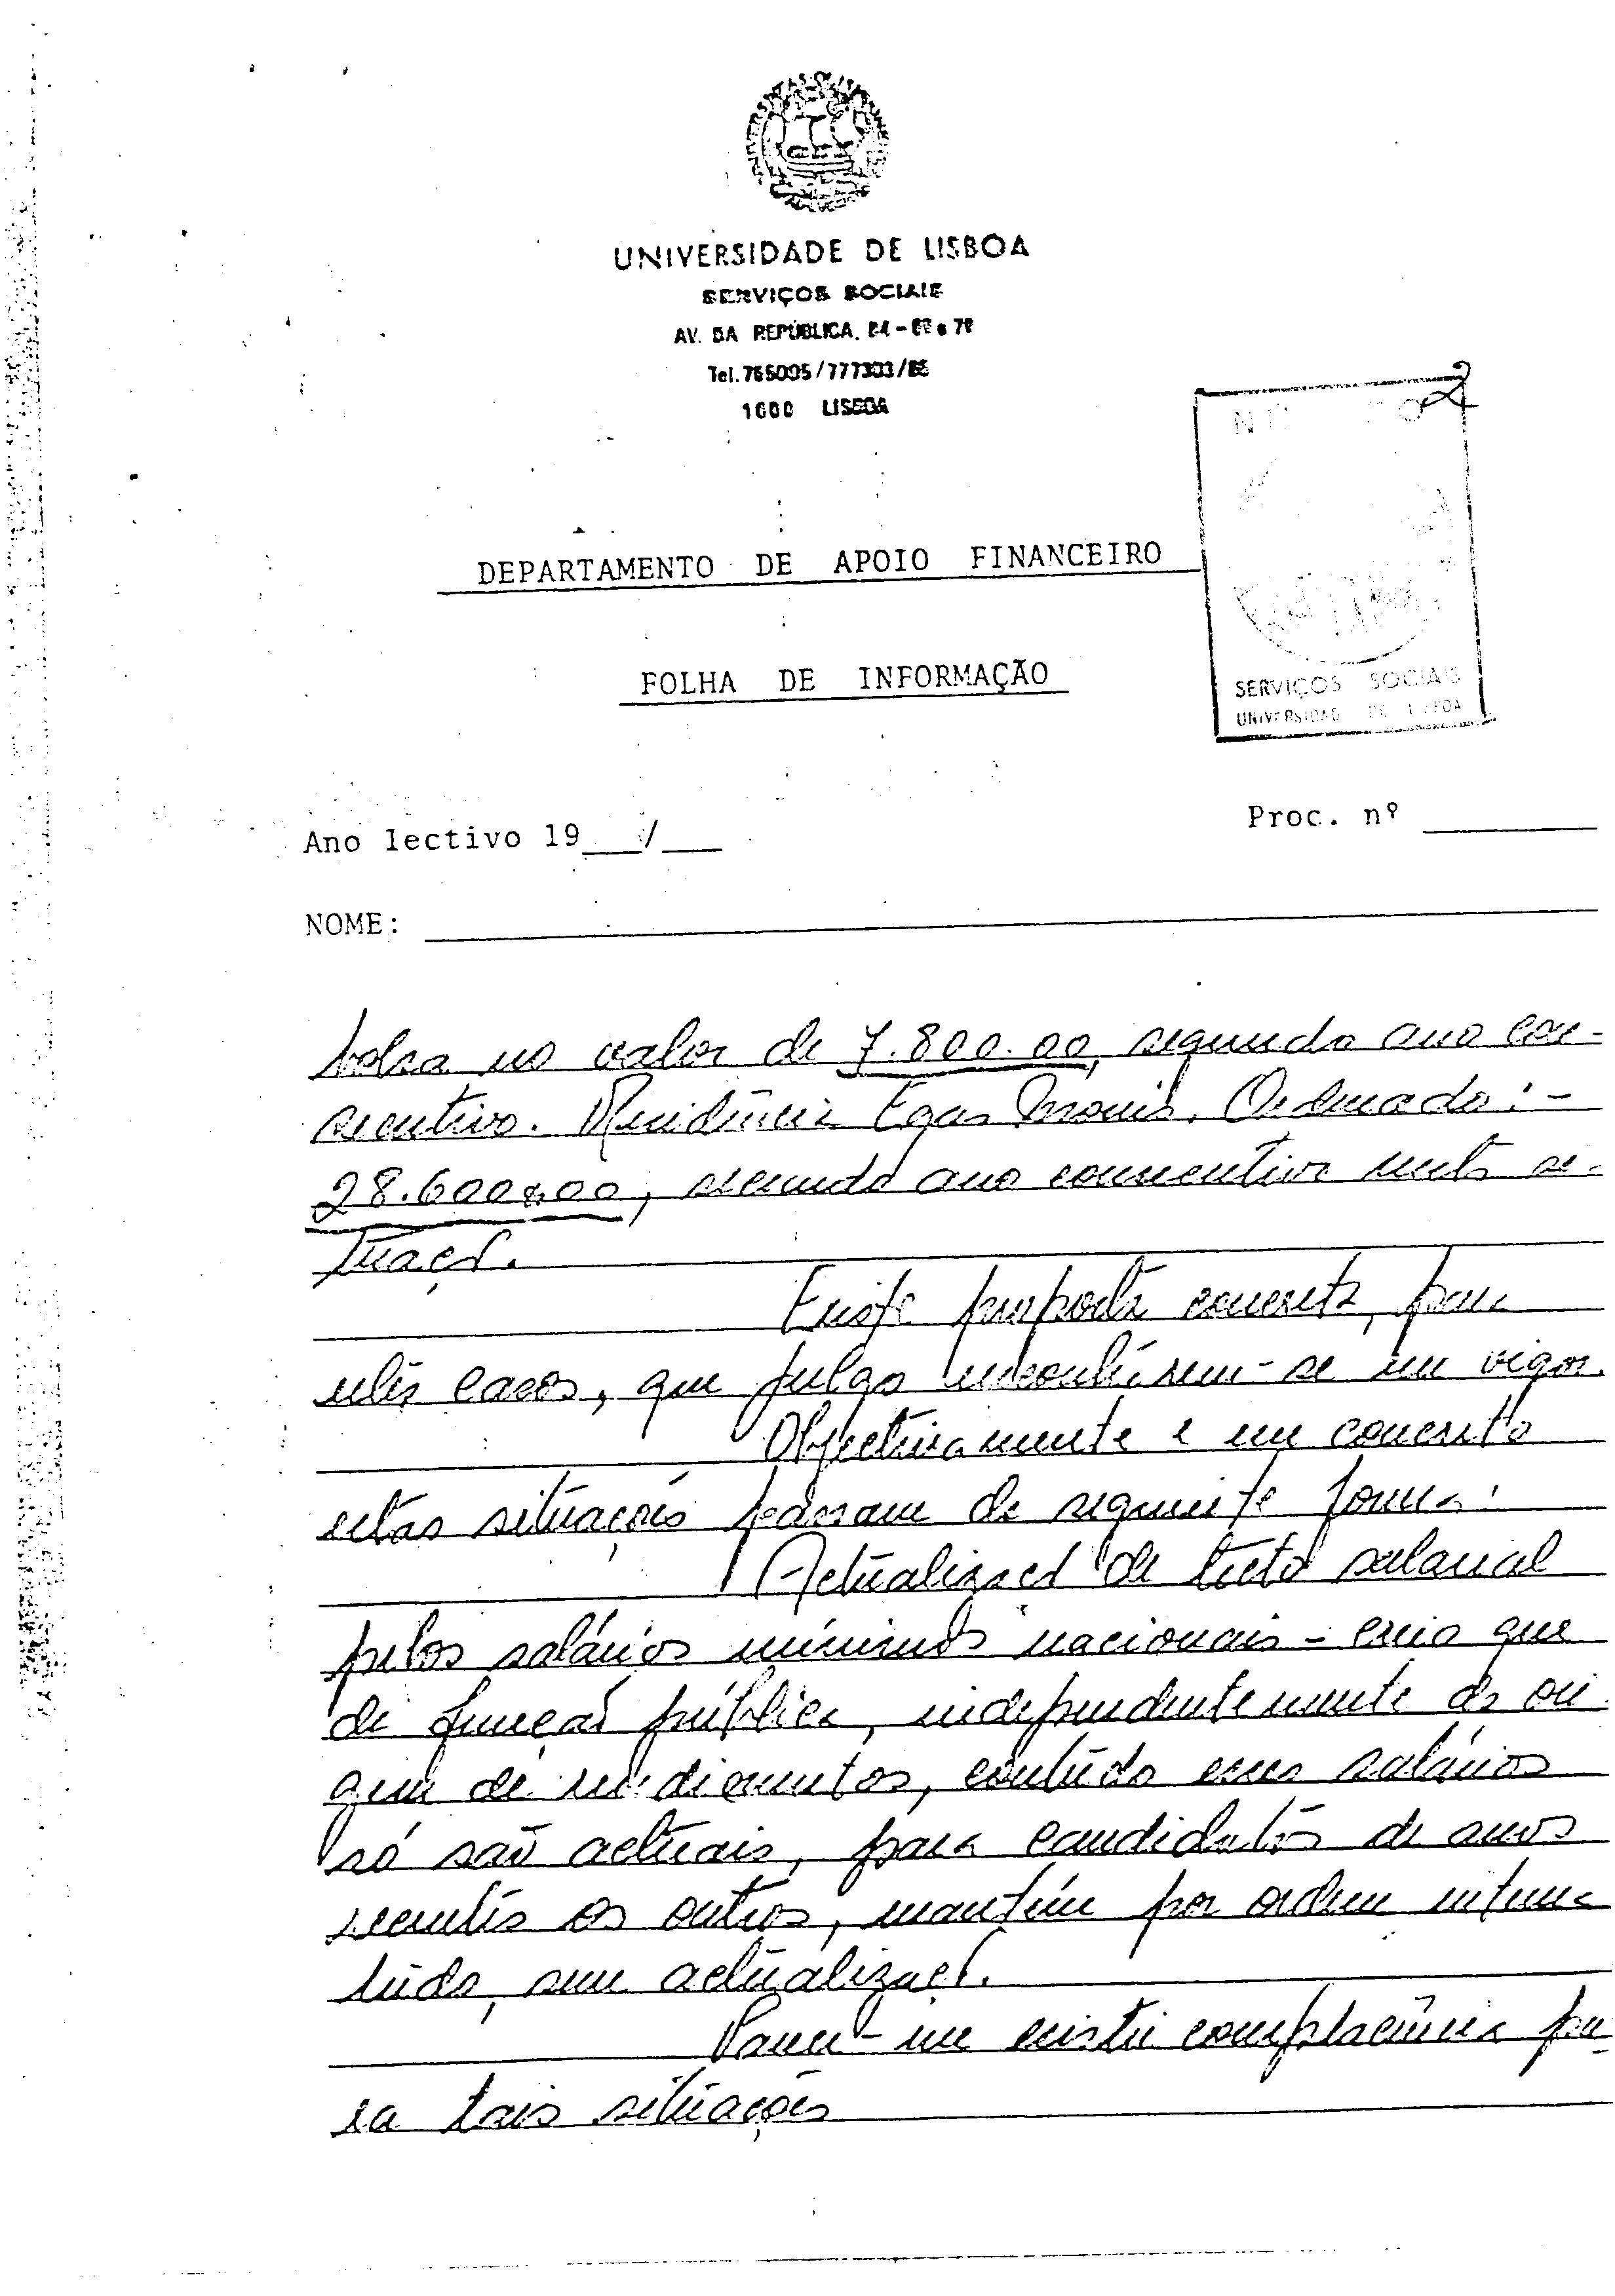 UNIVERSIDADE DE LISBOA
SERVIÇOS SOCIAIS
AV. DA REPÚBLICA, 84 -
Tel. 765095/777303/
1600 LISBOA
DEPARTAMENTO DE APOIO FINANCEIRO
FOLHA DE INFORMAÇÃO
SERVIÇOS SOCIAIS
UNIVERSIDADE DE LISBOA
Proc. nº
Ano lectivo 19___/___
NOME:
bolsa no valor de 7.800.00, segundo ano con-
secutivo. Residência Egas Moniz. Ordenado: -
28.600$00, segundo ano consecutivo nesta si-
tuação.
Existe proposta concreta, para
estes casos, que julgo encontrarem-se em vigor.
Objectivamente e em concreto
estas situações passam da seguinte forma:
Actualização de tecto salarial
pelos salários mínimos nacionais - creio que
da função pública, independentemente da ori
gem de rendimentos, contudo esses salários
só são actuais, para candidatos de anos
recentes os outros, mantém por ordem interna
tudo, sem actualização.
Parece-me existir complacência pa-
ra tais situações